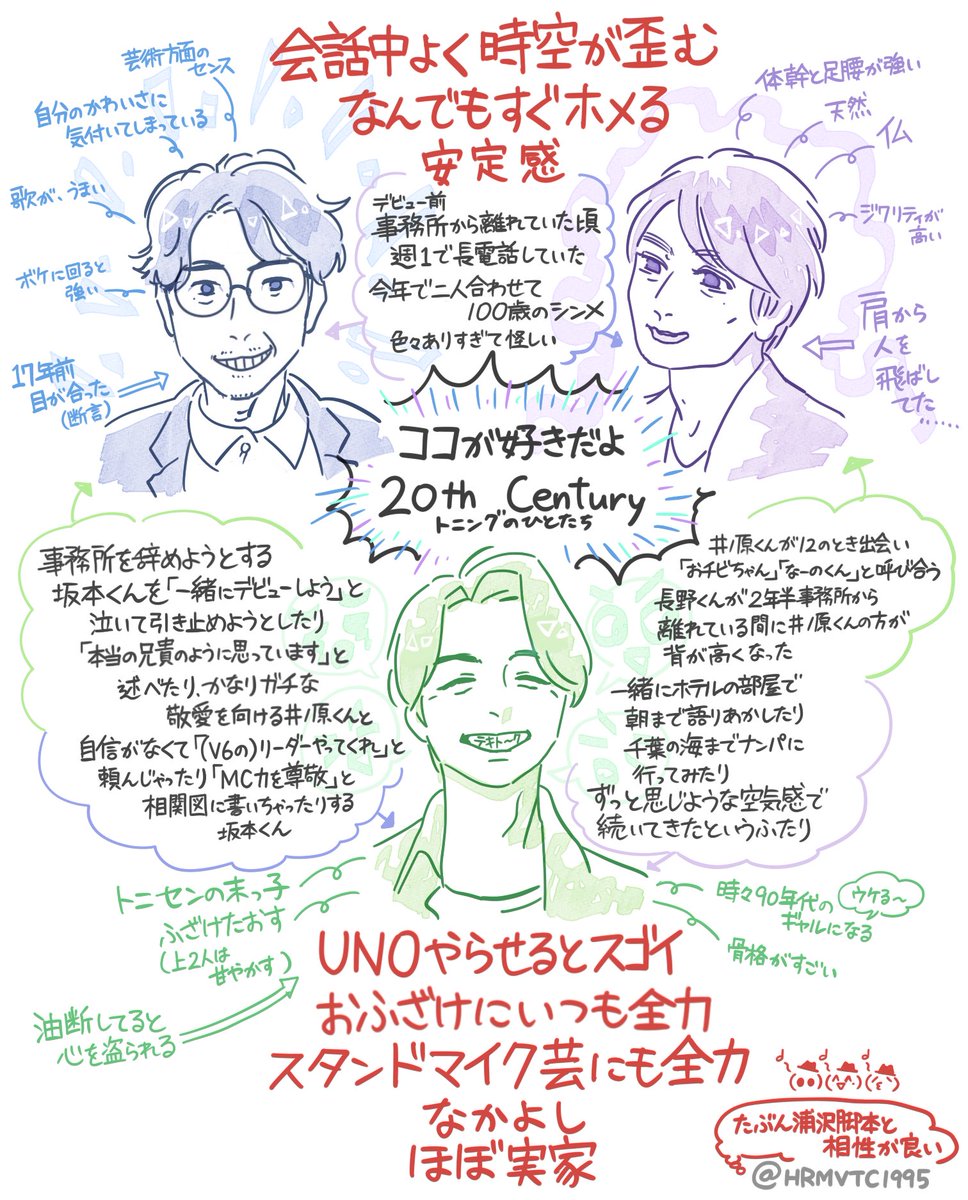 会話中よく時空が歪む
なんでもすぐホメる
安定感
芸術方面の
センス
自分のかわいさに
気付いてしまっている
歌が、うまい
ボケに回ると
強い
17年前
目が合った
(断言)
体幹と足腰が強い
天然
仏
ジワリティが
高い
肩から
人を
飛ばし
てた……
デビュー前
事務所から離れていた頃
週1で長電話していた
今年で二人合わせて
100歳のシンメ
色々ありすぎて怪しい
ココが好きだよ
20th Century
トニングのひとたち
事務所を辞めようとする
坂本くんを「一緒にデビューしよう」と
泣いて引き止めようとしたり
「本当の兄貴のように思っています」と
述べたり、かなりガチな
敬愛を向ける井ノ原くんと
自信がなくて「(V6の)リーダーやってくれ」と
頼んじゃったり「MC力を尊敬」と
相関図に書いちゃったりする
坂本くん
井ノ原くんが12のとき出会い
「おチビちゃん」「なーのくん」と呼び合う
長野くんが2年半事務所から
離れている間に井ノ原くんの方が
背が高くなった
一緒にホテルの部屋で
朝まで語りあかしたり
千葉の海までナンパに
行ってみたり
ずっと同じような空気感で
続いてきたというふたり
テキトーク
トニセンの末っ子
ふざけたおす
(上2人は
甘やかす)
油断してると
心を盗られる
時々90年代の
ギャルになる
ウケる〜
骨格がすごい
UNOやらせるとスゴイ
おふざけにいつも全力
スタンドマイク芸にも全力
なかよし
ほぼ実家
たぶん浦沢脚本と
相性が良い
@HRMVTC1995